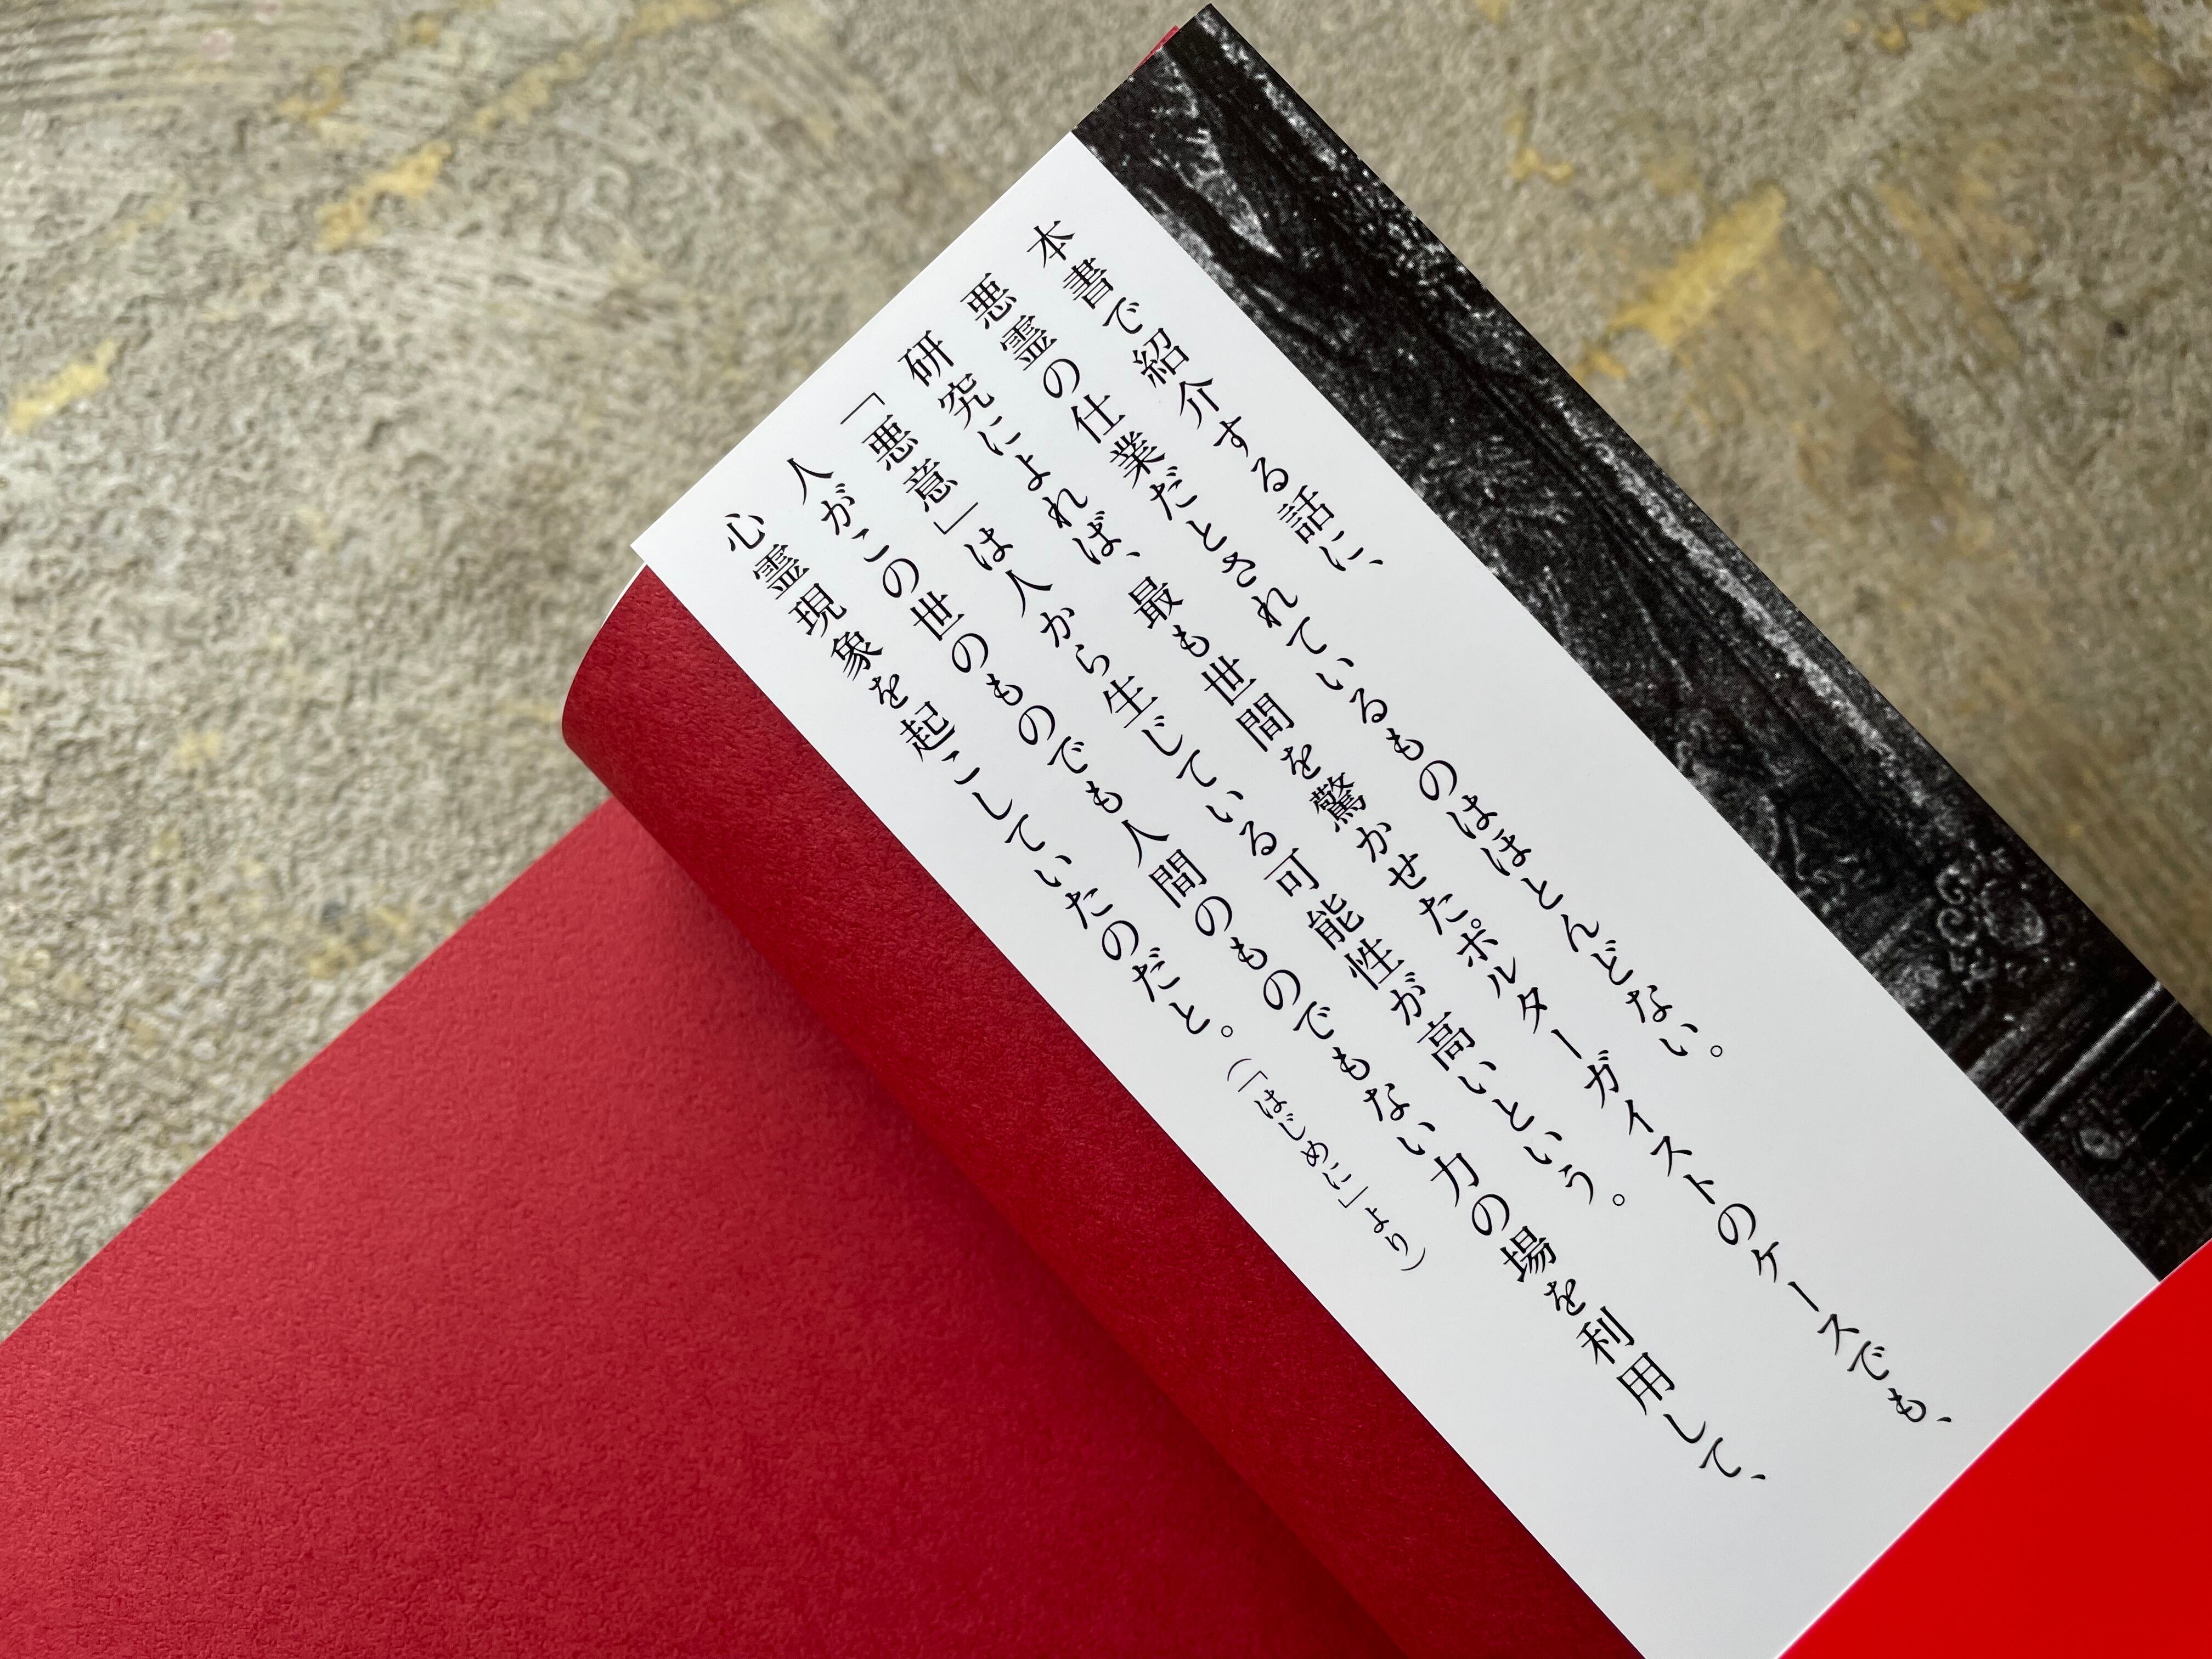 本書で紹介する話に、
悪霊の仕業だとされているものはほとんどない。
研究によれば、最も世間を驚かせたポルターガイストのケースでも、
「悪意」は人から生じている可能性が高いという。
人がこの世のものでも人間のものでもない力の場を利用して、
心霊現象を起こしていたのだと。（「はじめに」より）